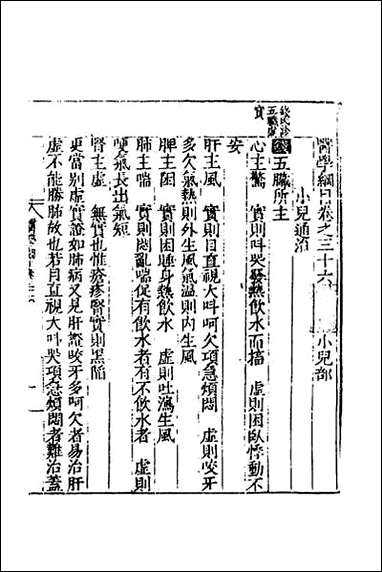 醫學綱目卷之三十六　小兒部
小兒通治
錢氏診五臟虛實
五臟所主
心主驚　實則叫哭發熱飲水而搐　虛則困臥悸動不
安
肝主風　實則目直視大叫呵欠項急煩悶　虛則咬牙
多欠氣熱則生風氣溫則內生風
脾主困　實則困睡身熱飲水　虛則吐瀉生風
肺主喘　實則悶亂喘促有飲水者有不飲水者　虛則
哽氣長出氣短
腎主虛　無實也惟瘡疹腎實則黑陷
更當別虛實證如肺病又見肝證咬牙多呵欠者易治肝
虛不能勝肺故也若目直視大叫哭項急煩悶者難治蓋